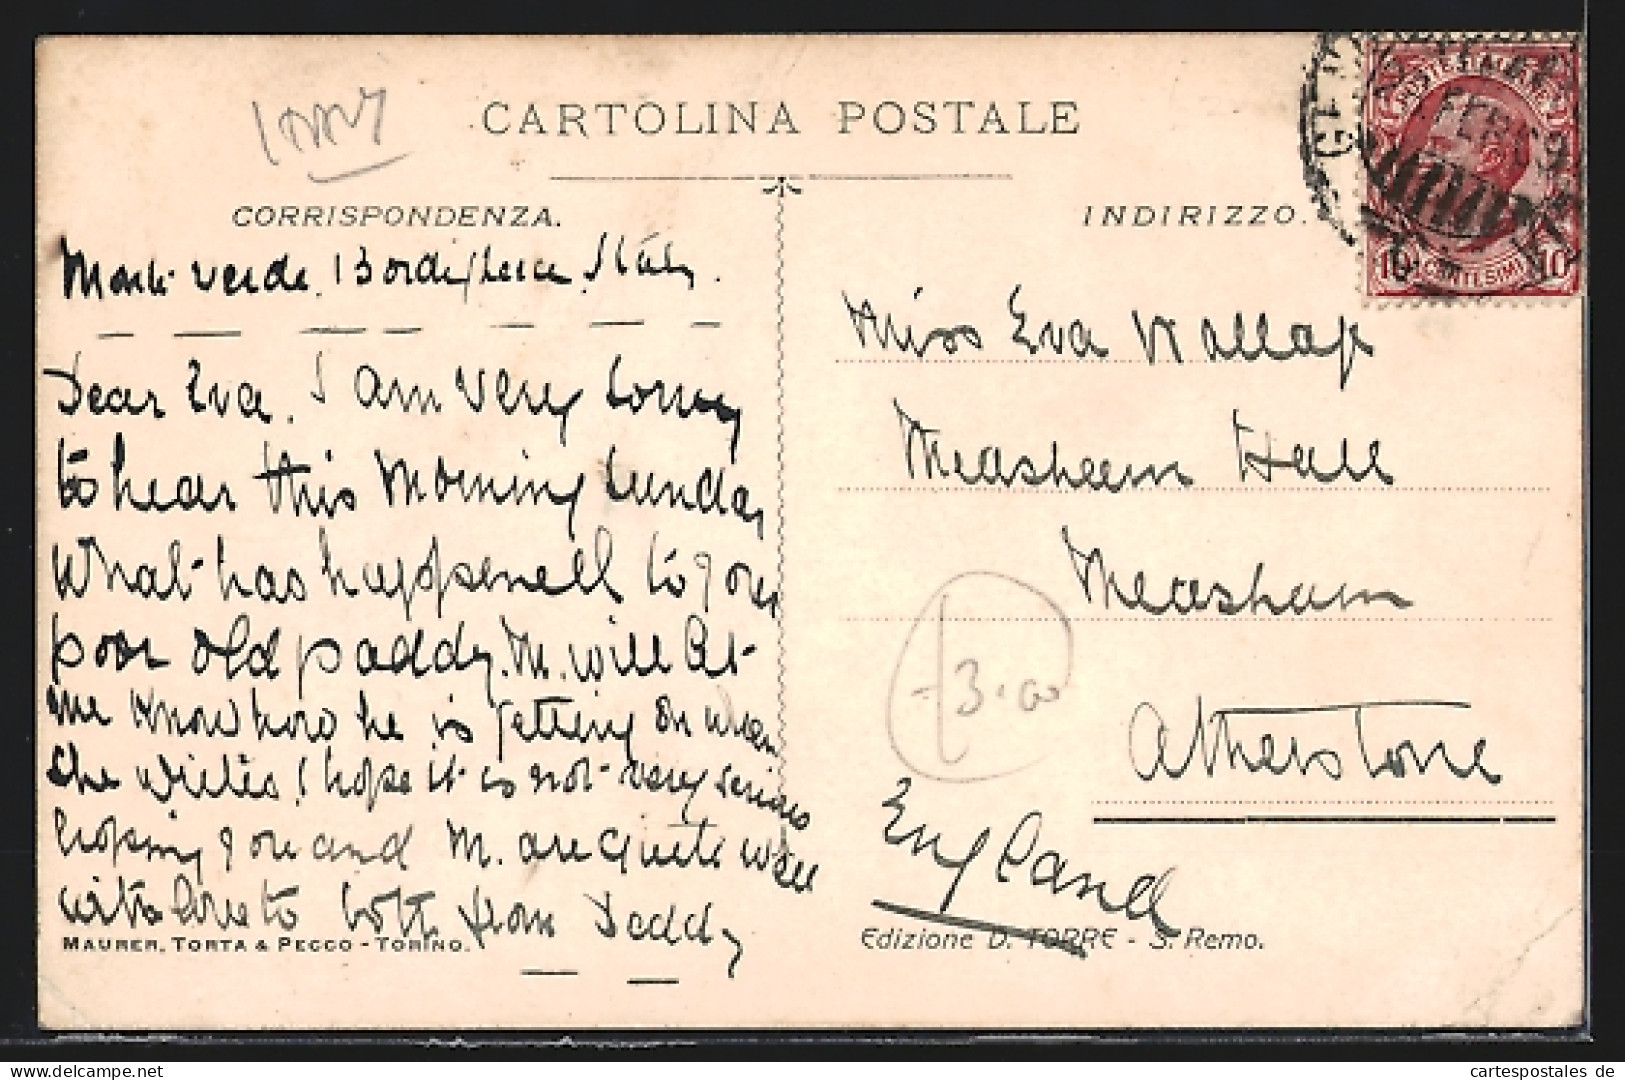 CARTOLINA POSTALE
CORRISPONDENZA.
INDIRIZZO.
POSTE ITALIANE
FEB 09
10 CENTESIMI 10
Monte Verde. Bordighera Italy.
Dear Eva. I am very sorry
to hear this morning Sunday
what has happened to your
poor old paddy. M. will let
me know how he is getting on when
she writes. I hope it is not very serious
hoping you and M. are quite well
with love to both from Deddy
Miss Eva Wallap
Measham Hall
Measham
Atherstone
England
3.00
MAURER, TORTA & PECCO - TORINO.
Edizione D. TORRE - S. Remo.
www.cartespostales.de